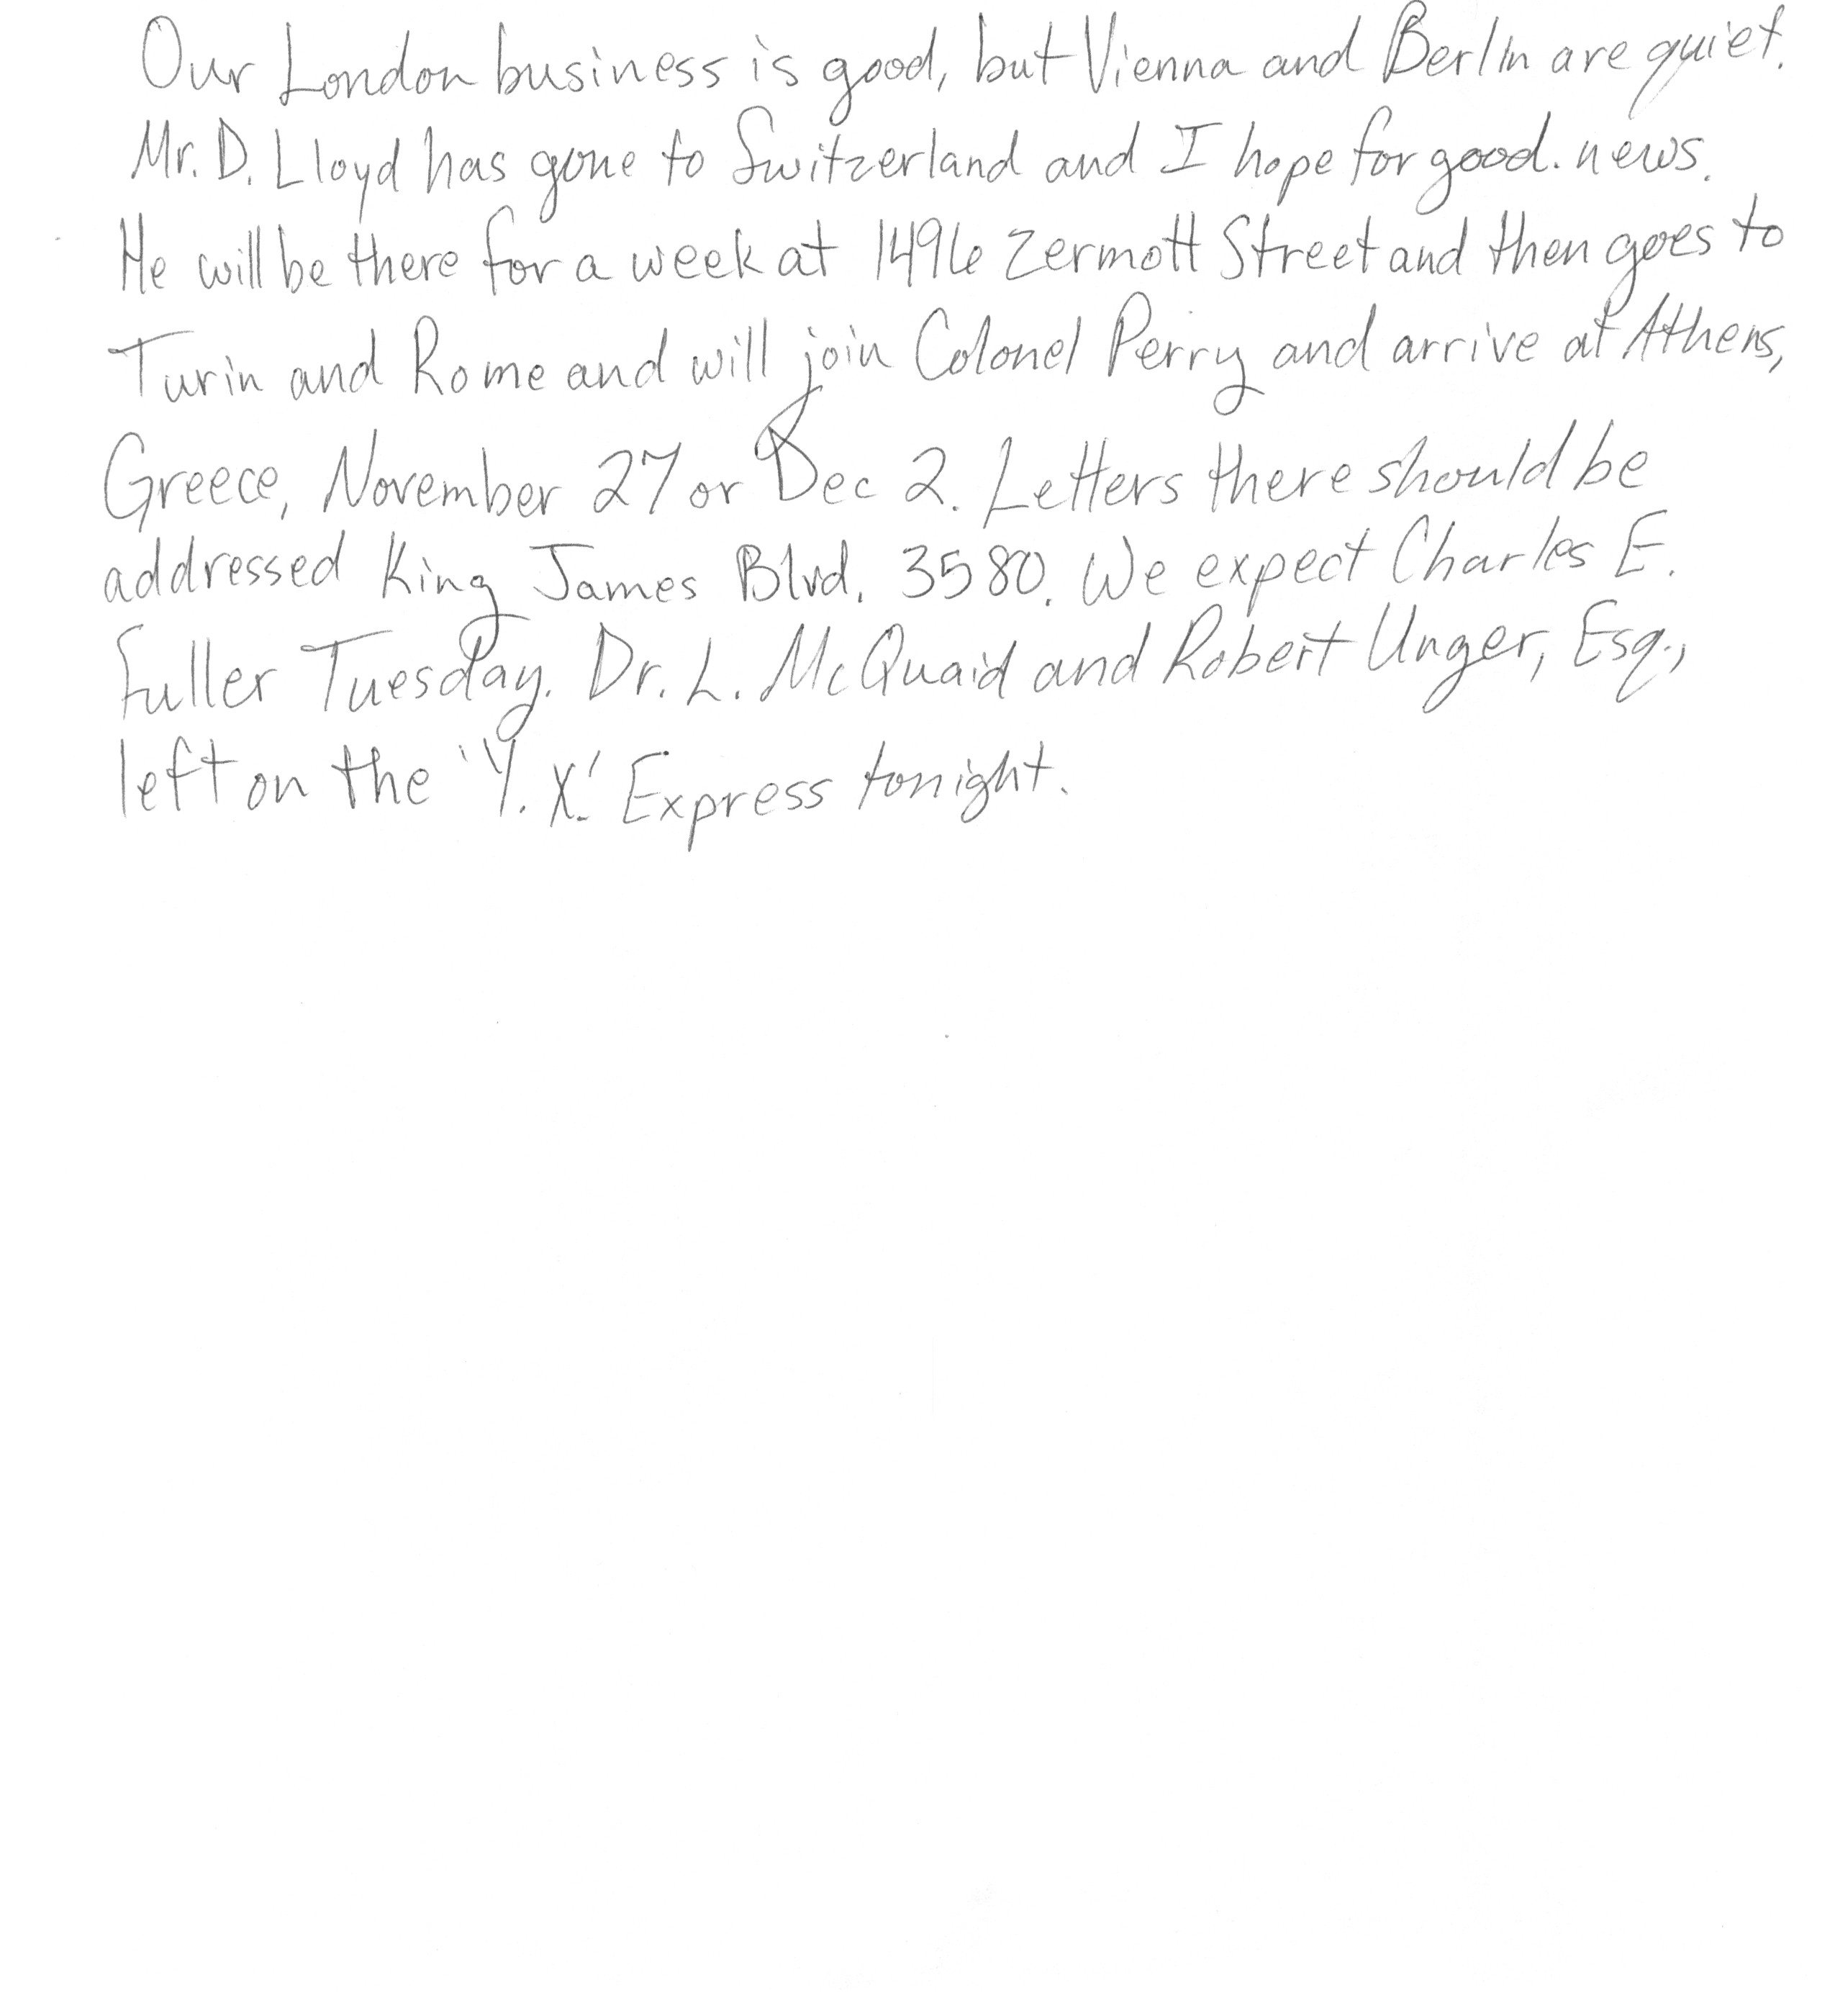 Our London business is good, but Vienna and Berlin are quiet.
Mr. D. Lloyd has gone to Switzerland and I hope for good. news.
He will be there for a week at 1496 Zermott Street and then goes to
Turin and Rome and will join Colonel Perry and arrive at Athens,
Greece, November 27 or Dec 2. Letters there should be
addressed King James Blvd. 3580. We expect Charles E.
Fuller Tuesday. Dr. L. McQuaid and Robert Unger, Esq.,
left on the 'Y. X.' Express tonight.